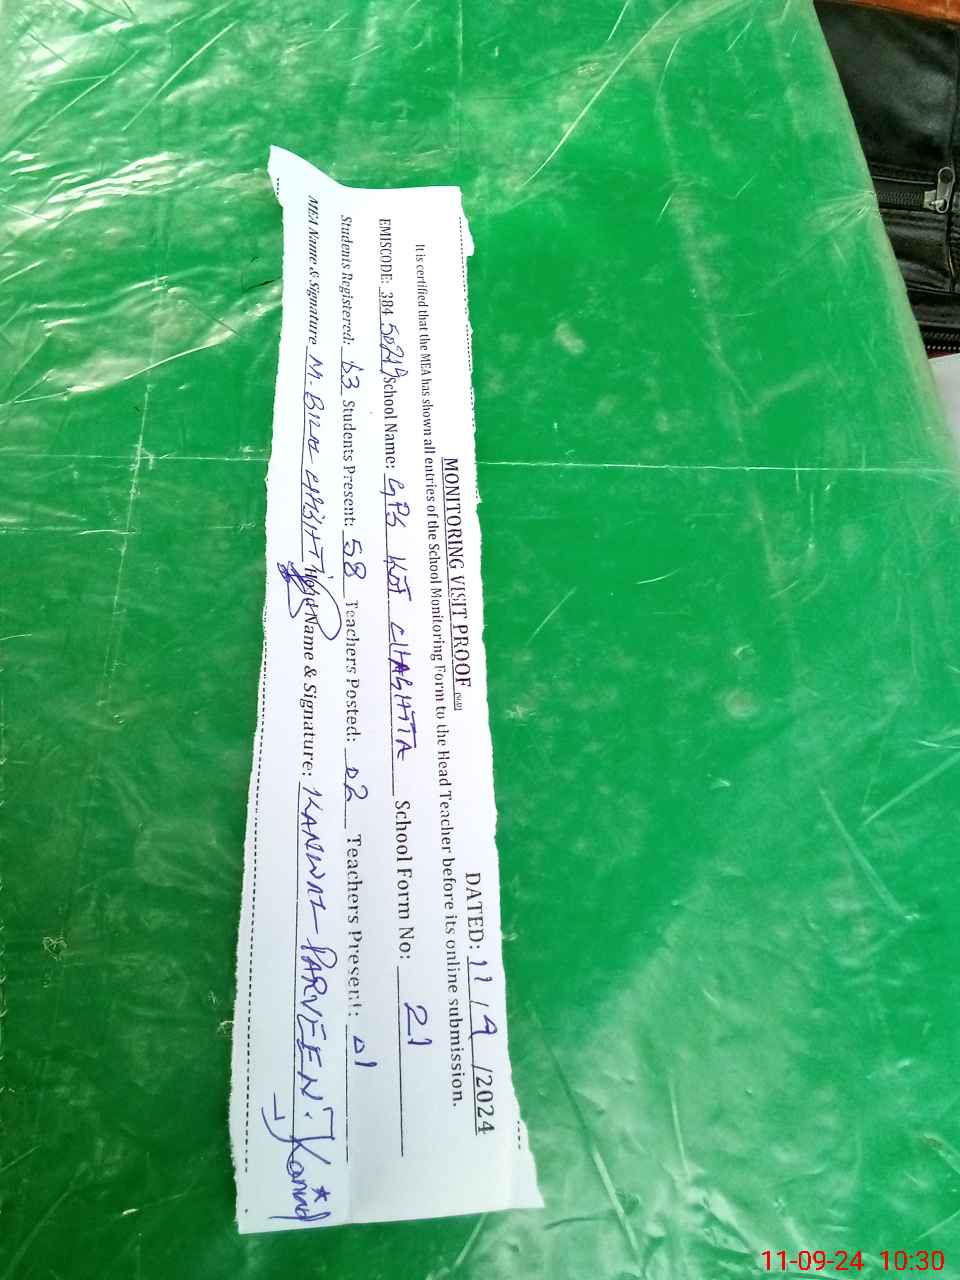 MONITORING VISIT PROOF
DATED: 11 / 9 /2024
It is certified that the MEA has shown all entries of the School Monitoring Form to the Head Teacher before its online submission.
EMISCODE: 384 School Name: GPS KOT CHAGHTTA School Form No: 21
Students Registered: 63 Students Present: 58 Teachers Posted: 02 Teachers Present: 01
MEA Name & Signature M. BILAL CHISHTI Head Name & Signature: KANWAL PARVEEN.
11-09-24 10:30